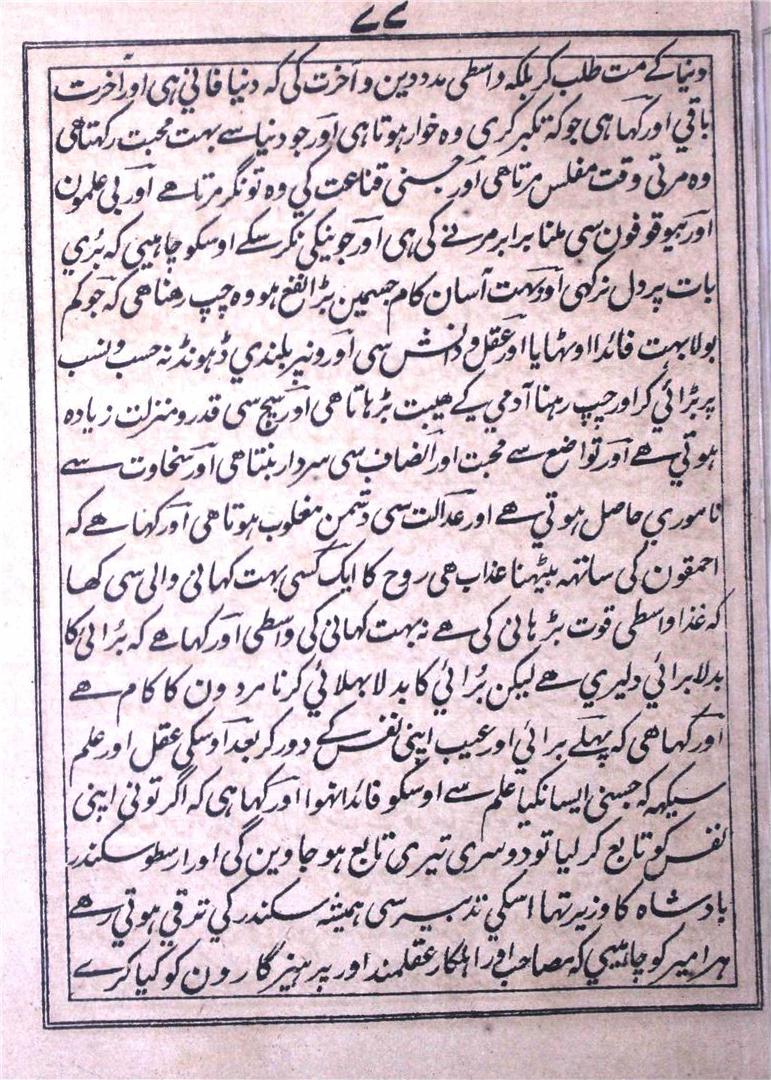 ٧٧
دنیا کے مت طلب کر بلکہ واسطی مدد دین و آخرت کی کہ دنیا فانی ہی اور آخرت
باقی اور کہا ہی جو کہ تکبر کری وہ خوار ہوتا ہی اور جو دنیا سے بہت محبت رکہتا ھی
وہ مرتی وقت مفلس مرتا ھی اور جسنی قناعت کی وہ تونگر مرتا ھے اور بی علمون
اور بیوقوفون سی ملنا برابر مرنے کی ہی اور جو نیکی نکر سکے اوسکو چاہیی کہ بُری
بات پر دل نرکہی اور بہت آسان کام جسمین بڑا نفع ہو وہ چپ رھنا ھی کہ جو کم
بولا بہت فائدا اوٹہایا اور عقل و دانش سی آورو نیز بلندی ڈہونڈ نہ حسب و نسب
پر بڑائی کر اور چپ رہنا آدمی کے ھیبت بڑہاتا ھی اور سچ سی قدر و منزلت زیادہ
ہوتی ھے اور تواضع سے محبت اور انصاف سی سردار بنتا ھی اور سخاوت سے
ناموری حاصل ہوتی ھے اور عدالت سی دشمن مغلوب ہوتا ھی اور کہا ھے کہ
احمقون کی ساتہہ بیٹہنا عذاب ھی روح کا ایک کسی بہت کہانی والی سی کھا
کہ غذا واسطی قوت بڑہانی کی ھے نہ بہت کہانی کی واسطی اور کہا ھے کہ بُرائی کا
بدلا برائی دلیری ھے لیکن بُرائی کا بدلا بہلائی کرنا مردون کا کام ھے
اور کہا ھی کہ پہلے برائی اور عیب اپنی نفس کے دور کر بعد اوسکی عقل اور علم
سیکہہ کہ جسنی ایسا نکیا علم سے اوسکو فائدا نہوا اور کہا ہی کہ اگر تونی اپنی
نفس کو تابع کر لیا تو دوسری تیری تابع ہو جاوین گی اور ارسطو سکندر
بادشاہ کا وزیر تہا اسکی تدبیر سی ہمیشہ سکندر کی ترقی ہوتی رھے
ہر امیر کو چاہیی کہ مصاحب اور اہلکار عقلمند اور پرہیزگارون کو کیا کرے